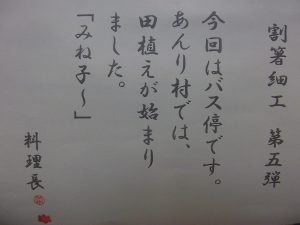 割箸細工　第五弾
今回はバス停です。
あんり村では、
田植えが始まり
ました。
「みね子～」
料理長